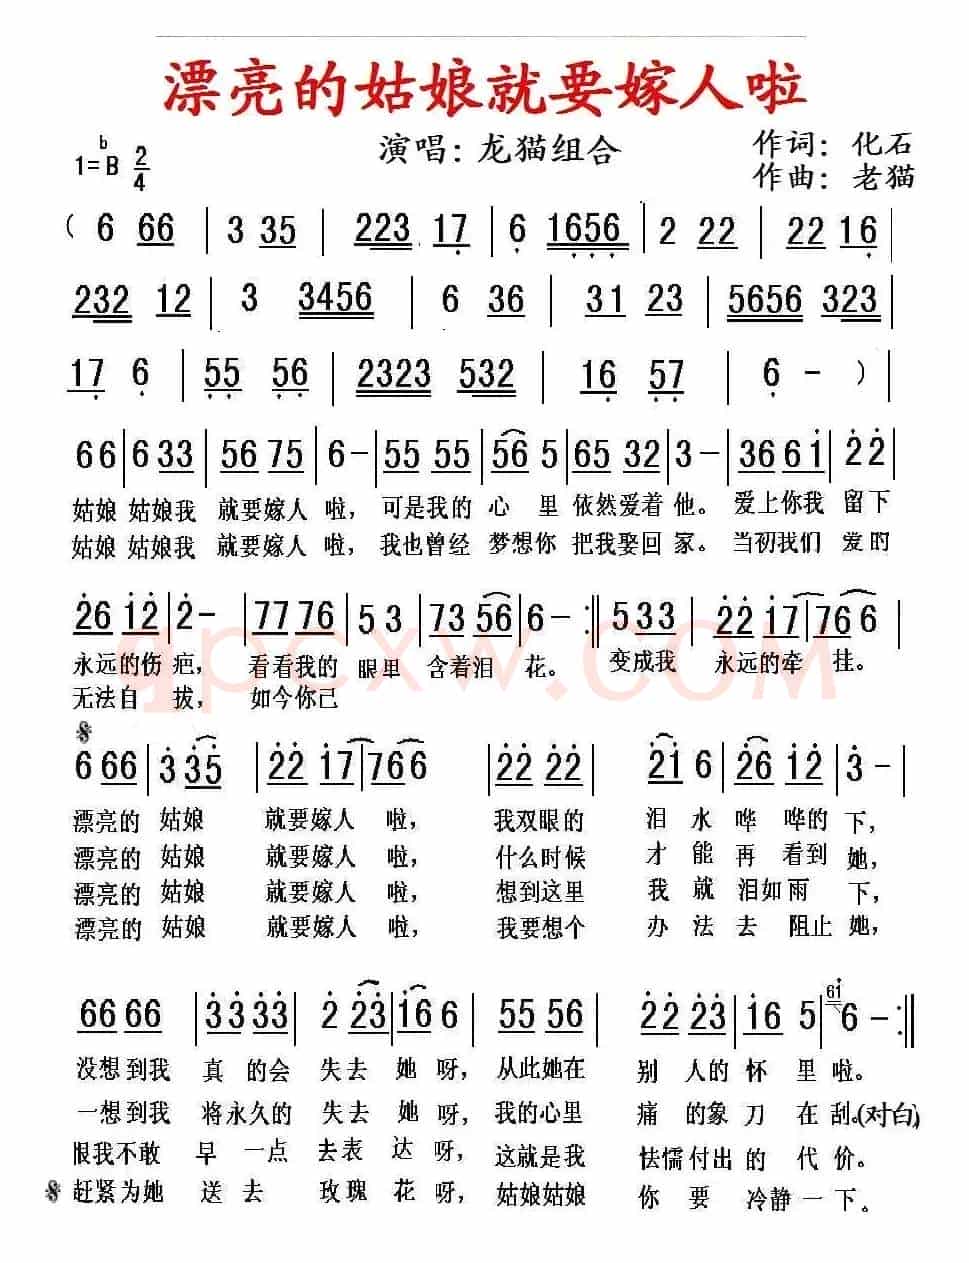 漂亮的姑娘就要嫁人啦
1=♭B 2/4 演唱：龙猫组合 作词：化石
作曲：老猫
( 6 66 | 3 35 | 223 17 | 6 1656 | 2 22 | 22 16 |
232 12 | 3 3456 | 6 36 | 31 23 | 5656 323 |
17 6 | 55 56 | 2323 532 | 16 57 | 6 - ) |
66 | 6 33 | 56 75 | 6 - | 55 55 | 56 5 | 65 32 | 3 - | 36 61 | 22
姑娘 姑娘我 就要嫁人 啦, 可是我的 心 里 依然爱着 他。 爱上你我 留下
姑娘 姑娘我 就要嫁人 啦, 我也曾经 梦想你 把我娶回 家。 当初我们 爱的
26 12 | 2 - | 77 76 | 53 | 73 56 | 6 - :|| 5 33 | 22 17 | 76 6 |
永远的伤 疤, 看看我的 眼里 含着泪 花。 变成我 永远的牵 挂。
无法自 拔, 如今你已
6 66 | 3 35 | 22 17 | 766 | 22 22 | 21 6 | 26 12 | 3 - |
漂亮的 姑娘 就要嫁人 啦, 我双眼的 泪 水 哗 哗的 下,
漂亮的 姑娘 就要嫁人 啦, 什么时候 才 能 再 看到 她,
漂亮的 姑娘 就要嫁人 啦, 想到这里 我 就 泪如雨 下,
漂亮的 姑娘 就要嫁人 啦, 我要想个 办 法 去 阻止 她,
66 66 | 33 33 | 2 23 | 16 6 | 55 56 | 22 23 | 16 5 | 61 6 - :||
没想到我 真 的会 失去 她 呀, 从此她在 别 人的 怀 里 啦。
一想到我 将永久的 失去 她 呀, 我的心里 痛 的象 刀 在 刮。(对白)
恨我不敢 早 一点 去表 达 呀, 这就是我 怯懦付出 的 代 价。
赶紧为她 送 去 玫瑰 花 呀, 姑娘姑娘 你 要 冷静 一 下。
qpcxw.COM